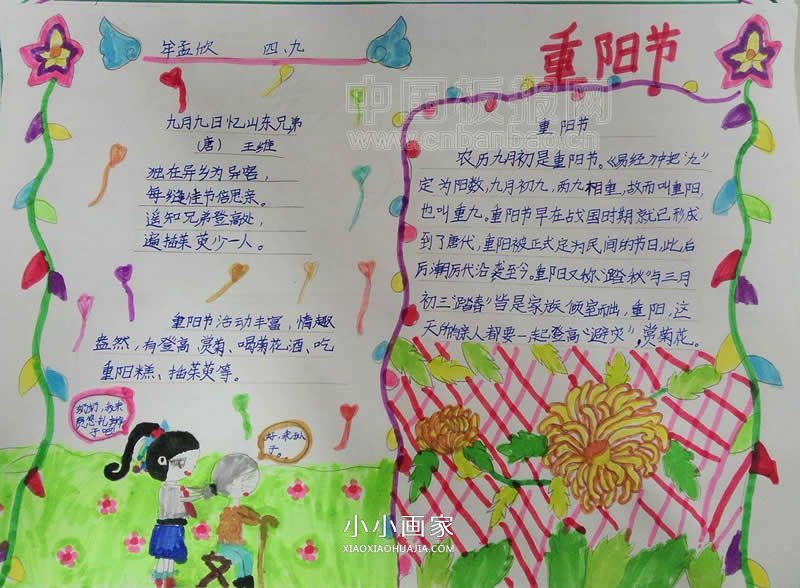 牟孟欣 四、九
九月九日忆山东兄弟
(唐) 王维
独在异乡为异客,
每逢佳节倍思亲。
遥知兄弟登高处,
遍插茱萸少一人。
重阳节活动丰富,情趣
盎然,有登高、赏菊、喝菊花酒、吃
重阳糕、插茱萸等。
奶奶,我来
帮您扎辫
子吧!
好,乖孙
子。
重阳节
重阳节
农历九月初是重阳节。《易经》中把“九”
定为阳数,九月初九,两九相重,故而叫重阳,
也叫重九。重阳节早在战国时期就已形成,
到了唐代,重阳被正式定为民间的节日,此后
历朝历代沿袭至今。重阳又称“踏秋”与三月
初三“踏春”皆是家族倾室而出,重阳,这
天所有亲人都要一起登高“避灾”,赏菊花。
中国板报网
www.cnbanbao.cn
小小画家
XIAOXIAOHUAJIA.COM